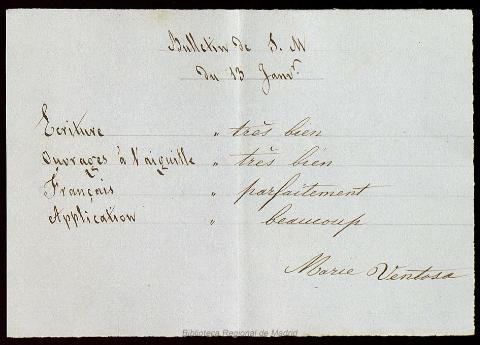 Bulletin de S. M
du 13 Janvr.
Ecriture " très bien
Ouvrages à l'aiguille " très bien
Français " parfaitement
Application " beaucoup
Marie Ventosa
Biblioteca Regional de Madrid